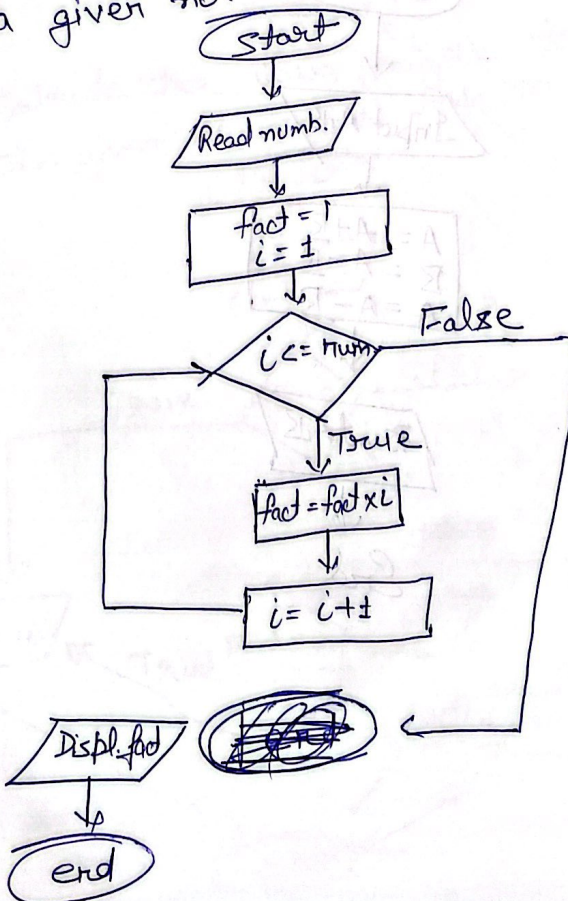 a given
start
Read numb.
fact = 1
i = 1
i <= num
False
True
fact = fact × i
i = i + 1
Displ. fact
end